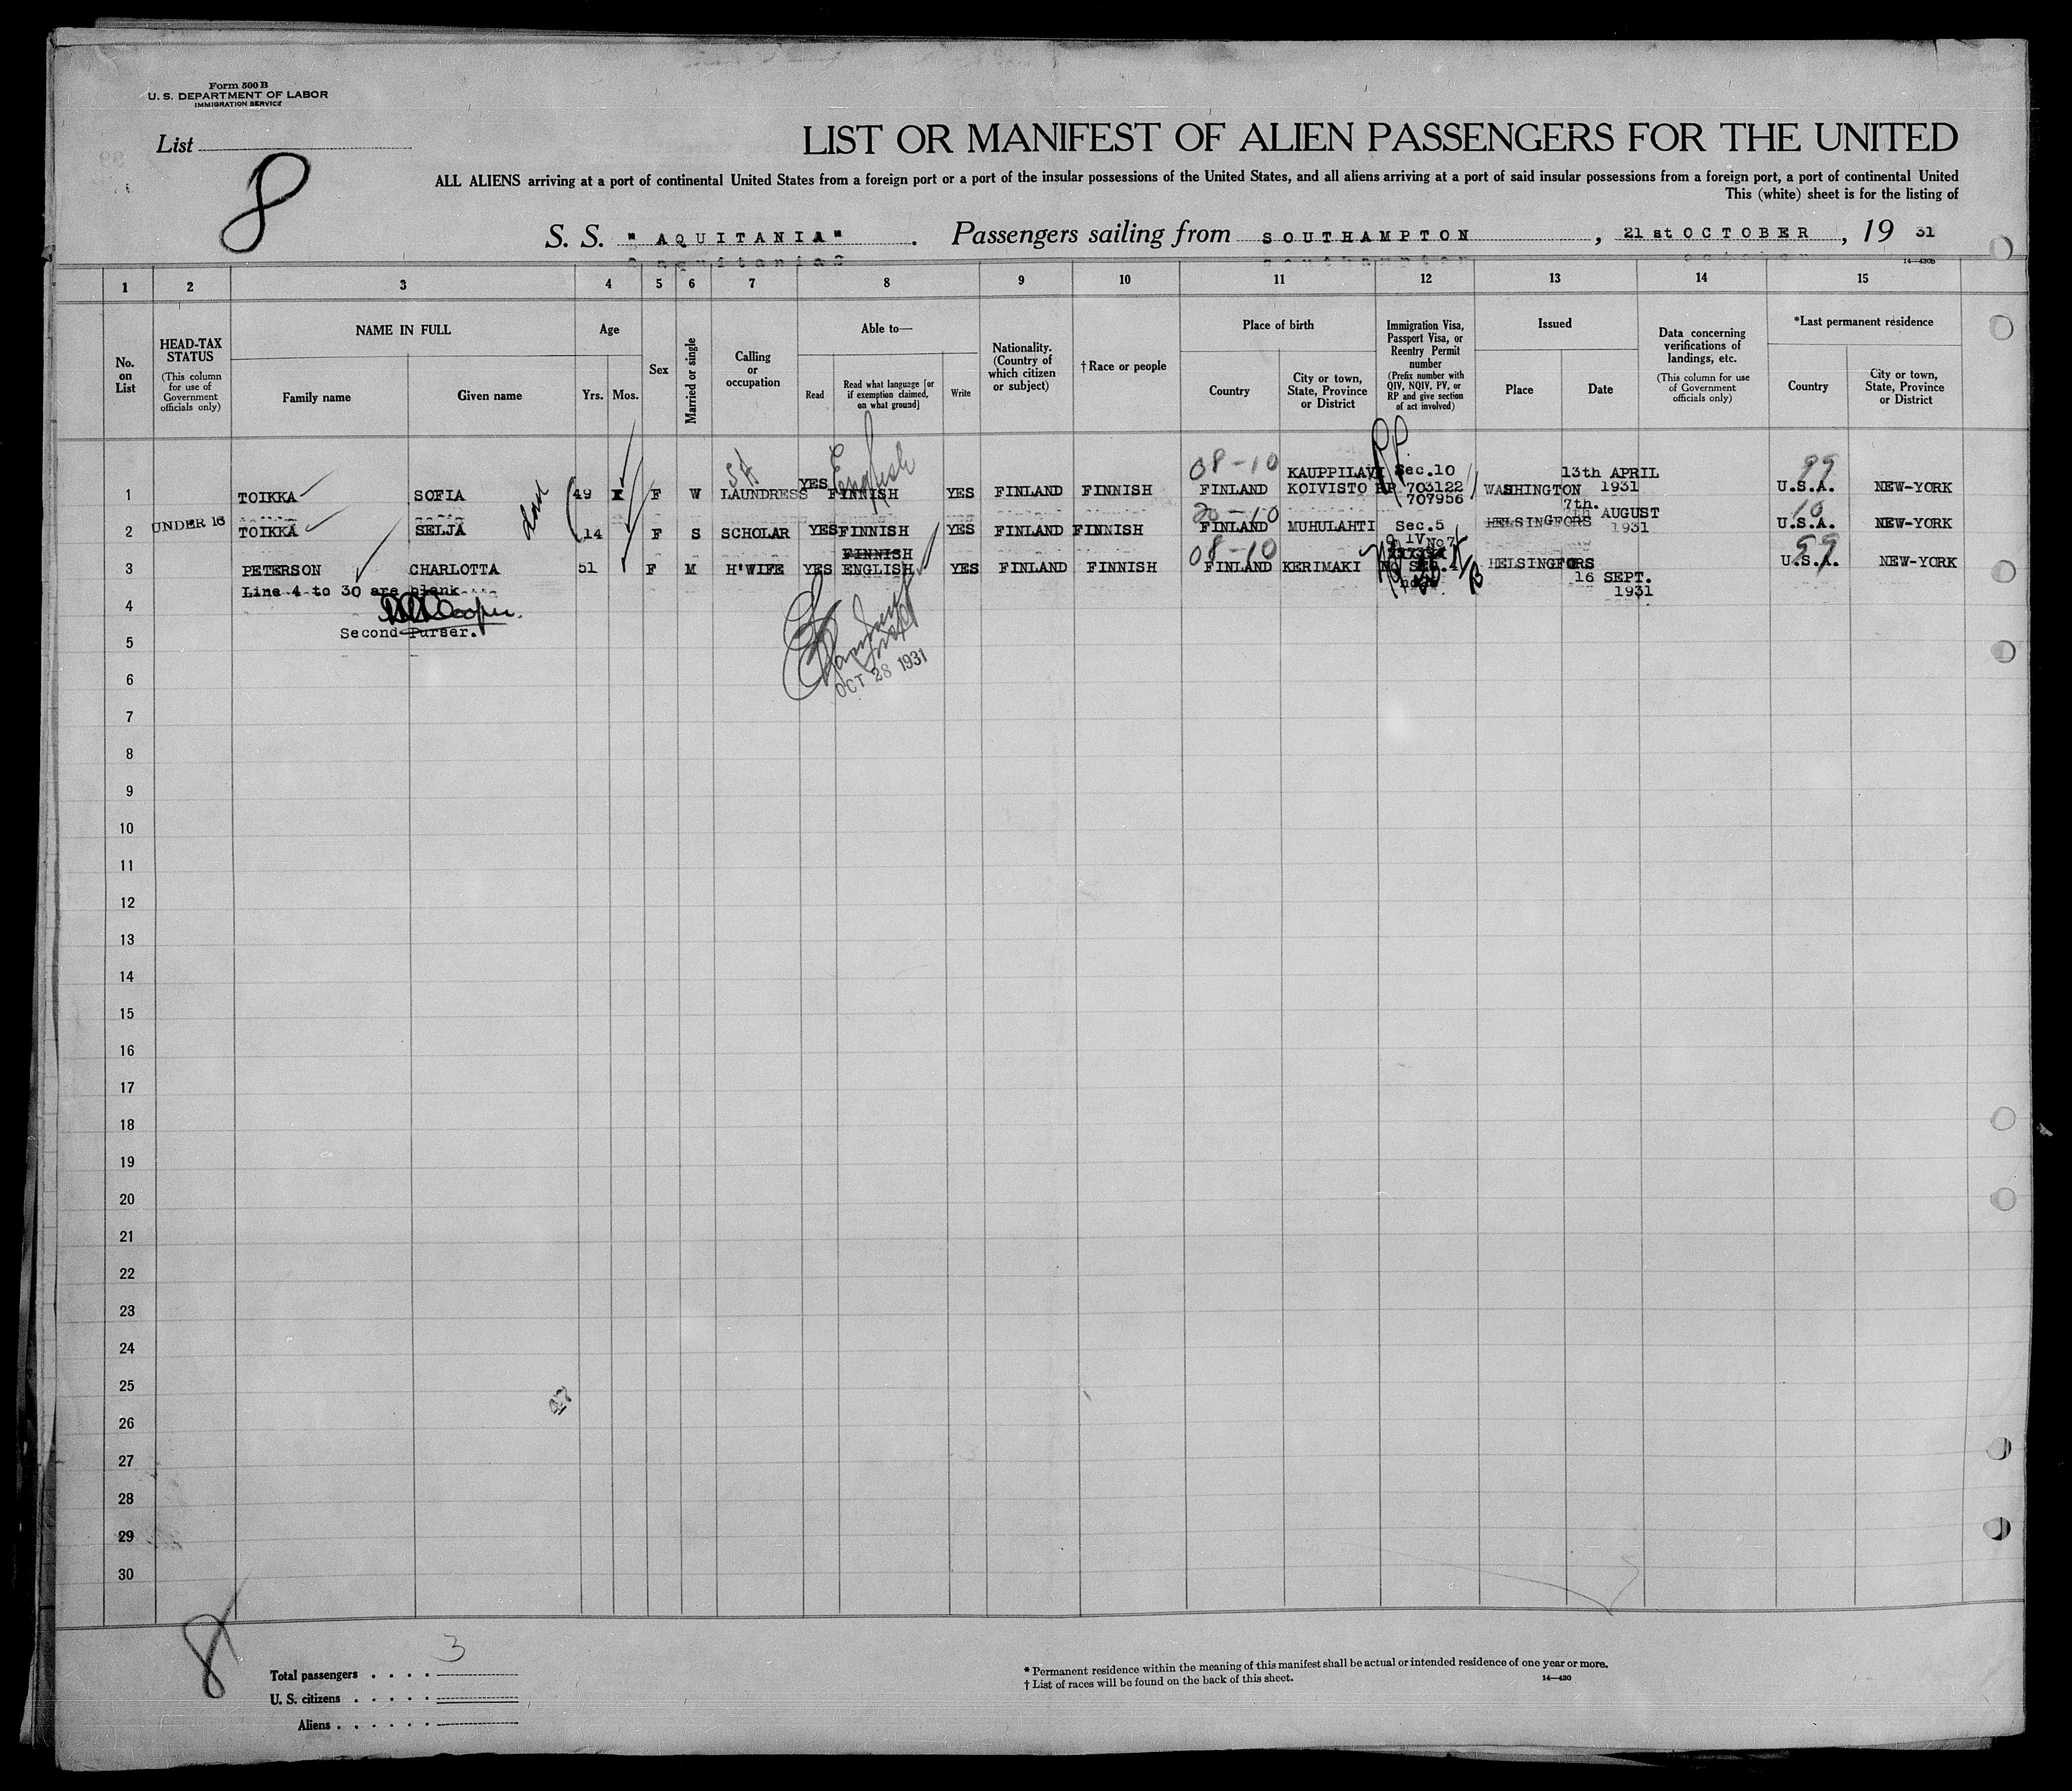 Form 500 B
U. S. DEPARTMENT OF LABOR
IMMIGRATION SERVICE
List
8
LIST OR MANIFEST OF ALIEN PASSENGERS FOR THE UNITED
ALL ALIENS arriving at a port of continental United States from a foreign port or a port of the insular possessions of the United States, and all aliens arriving at a port of said insular possessions from a foreign port, a port of continental United
This (white) sheet is for the listing of
S. S. "AQUITANIA". Passengers sailing from SOUTHAMPTON, 21st OCTOBER, 19 31
14—430b
1 2 3 4 5 6 7 8 9 10 11 12 13 14 15
No. on List
HEAD-TAX STATUS
(This column for use of Government officials only)
NAME IN FULL
Family name
Given name
Age
Yrs. Mos.
Sex
Married or single
Calling or occupation
Able to—
Read
Read what language [or if exemption claimed, on what ground]
Write
Nationality. (Country of which citizen or subject)
† Race or people
Place of birth
Country
City or town, State, Province or District
Immigration Visa, Passport Visa, or Reentry Permit number
(Prefix number with QIV, NQIV, PV, or RP and give section of act involved)
Issued
Place
Date
Data concerning verifications of landings, etc.
(This column for use of Government officials only)
*Last permanent residence
Country
City or town, State, Province or District
SA English 08-10 KAUPPILAVI Sec.10 13th APRIL 99
1 TOIKKA SOFIA 49 F W LAUNDRESS YES FINNISH YES FINLAND FINNISH FINLAND KOIVISTO RP 703122 WASHINGTON 1931 U.S.A. NEW-YORK
707956
20-10 7th. AUGUST 10
2 UNDER 16 TOIKKA SELJA 14 F S SCHOLAR YES FINNISH YES FINLAND FINNISH FINLAND MUHULAHTI Sec.5 HELSINGFORS 1931 U.S.A. NEW-YORK
FINNISH 08-10 59
3 PETERSON CHARLOTTA 51 F M H'WIFE YES ENGLISH YES FINLAND FINNISH FINLAND KERIMAKI HELSINGFORS U.S.A. NEW-YORK
16 SEPT. 1931
Line 4 to 30 are blank
4
Second Purser.
5
OCT 28 1931
6
7
8
9
10
11
12
13
14
15
16
17
18
19
20
21
22
23
24
25
26
27
28
29
30
8
Total passengers . . . . 3
U. S. citizens . . . . .
Aliens . . . . . .
* Permanent residence within the meaning of this manifest shall be actual or intended residence of one year or more.
† List of races will be found on the back of this sheet.
14—430